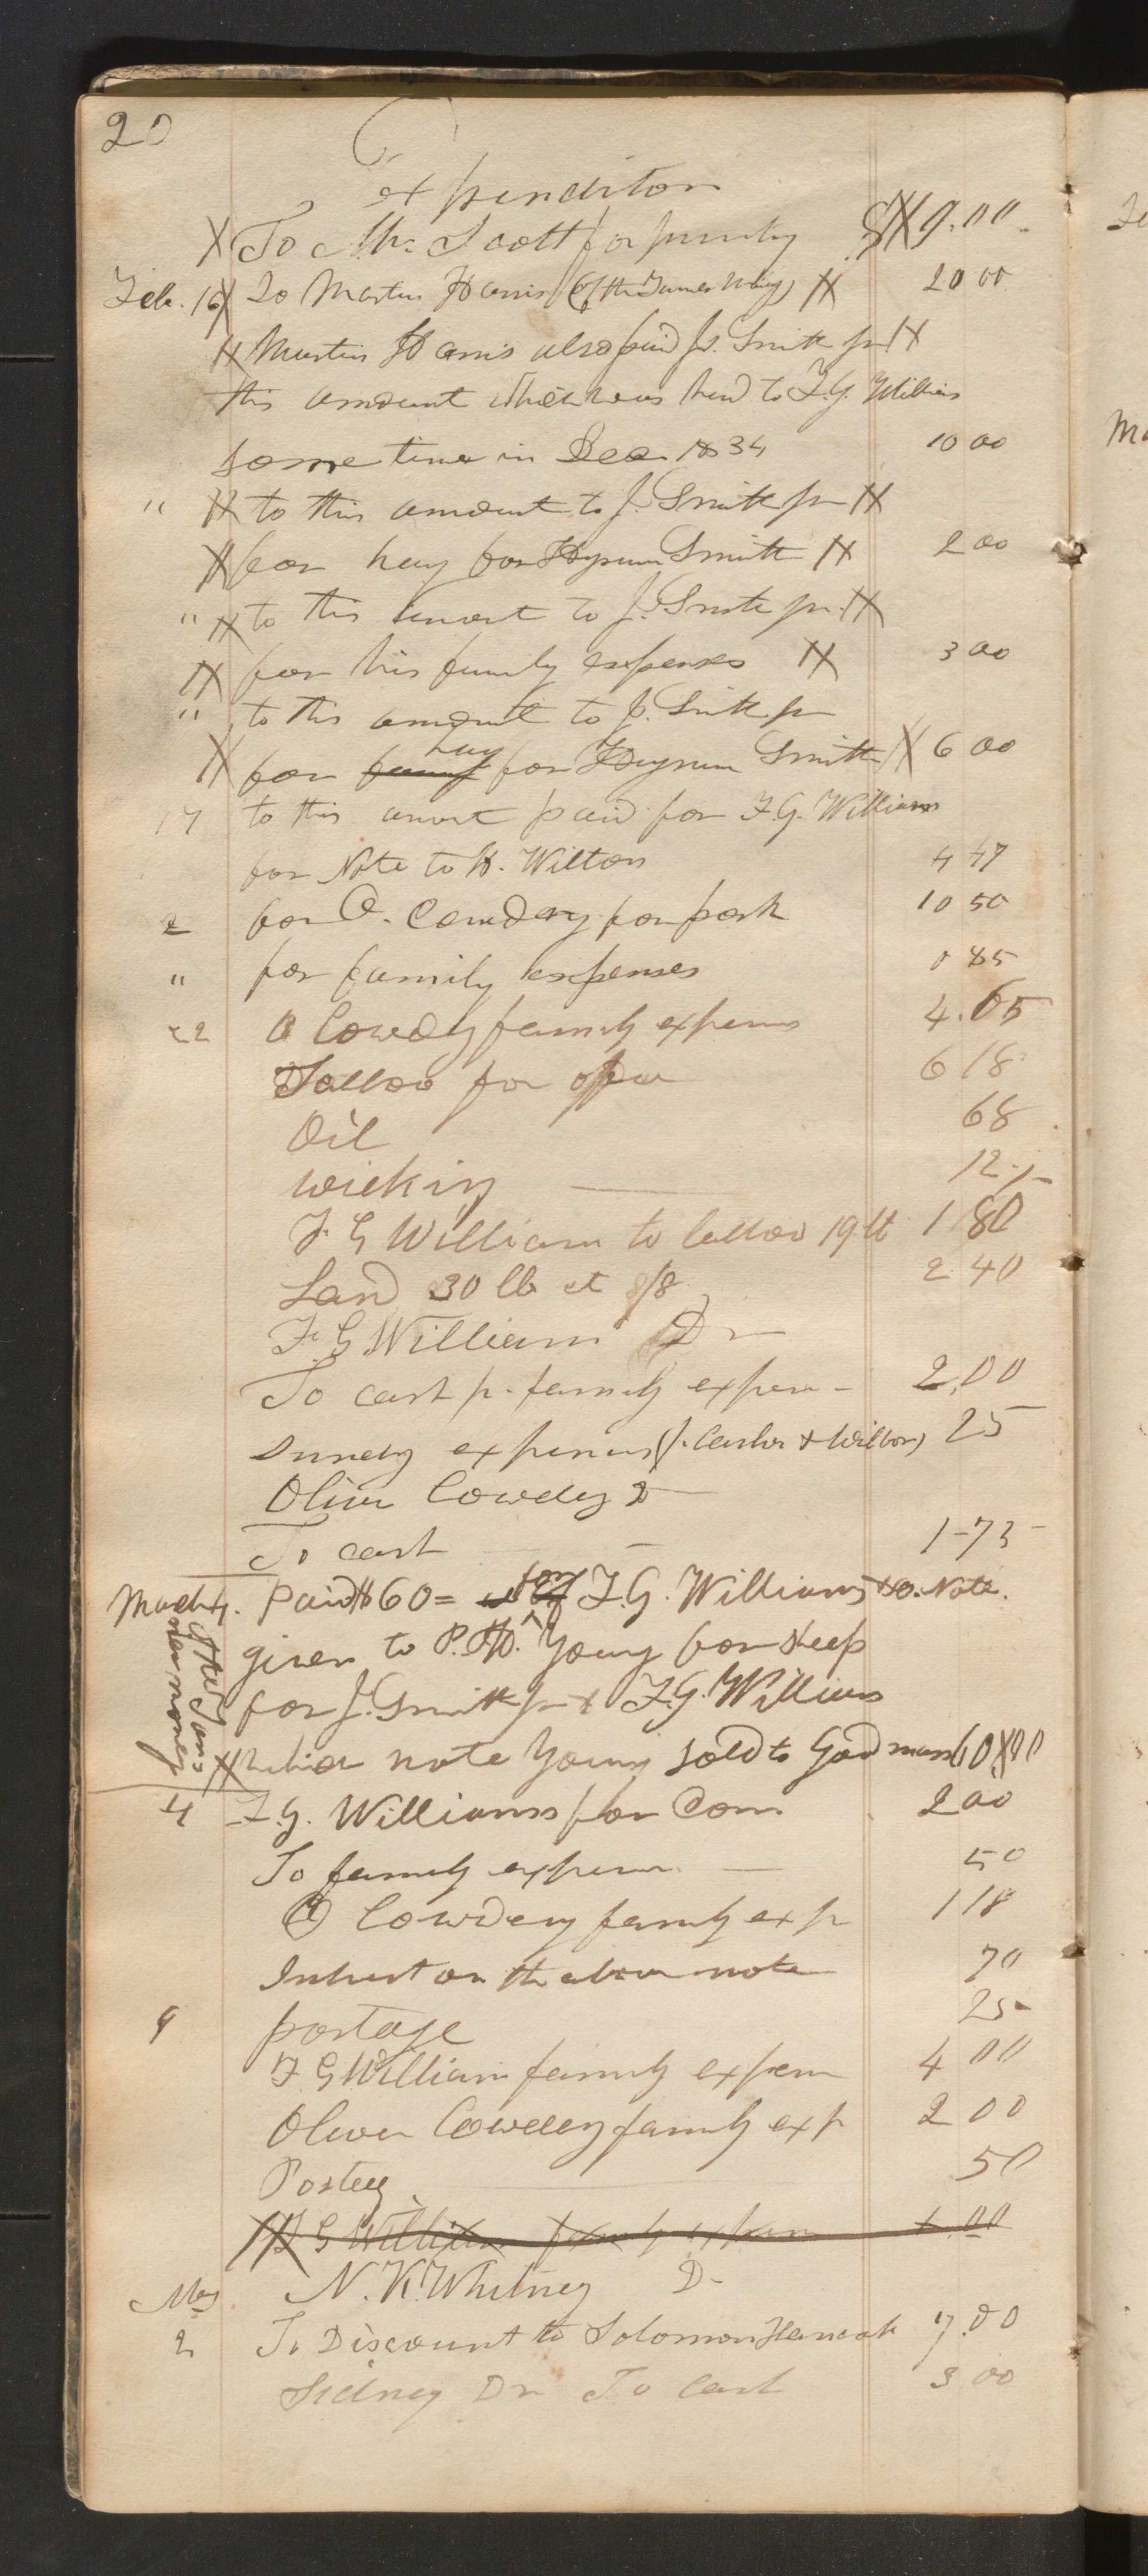 20
Expenditon
X To Mr. Scott for sundry $X 9.00
Feb. 16 X To Martin Harris (of the Tames Way) X 20 00
X Martin Harris also paid J. Smith jr X
this amount which was lend to F.G. Williams
some time in Dec 1834 10 00
" X to this amount to J. Smith jr X
X for hay for Hyrum Smith X 2 00
" X to this amout to J. Smith jr. X
X for his family expenses X 3 00
" to this amount to J. Smith jr
X for family hay for Hyrum Smith X 6 00
17 to this amout paid for F.G. Williams
for Note to H. Wilton 4 47
2 for O. Cowdery for pork 10 50
" for family expenses 0 85
22 O Cowdery family expens 4.65
Tallow for office 6 18
Oil 68
wicking 12 1/2
F G William to tallow 19 lb 1 80
Lard 30 lb at /8 2 40
F. G William Dr
To cash pr family expen 2,00
Sundry expenses (J. Carter & Wilbor) 25
Oliver Cowdery D
To cash 1-73
March 4. Paid $60= for F.G. Williams & O. Note.
given to P. H. Young for sheep
for J. Smith jr & F.G. Williams
X which note Young sold to Goodman 60 X 00
of the Tans
new money
4 F.G. Williams for Corn 2 00
To family expens 50
O Cowdery family exp 1 18
Interest on the above note 70
9 postage 25
F G William family expen 4 00
Oliver Cowdery family exp 2 00
Postag 50
X F G William family expen 4.00
May N. K. Whitney D-
2 To Discount to Solomon Hancock 7.00
Sidney Dr To Cash 3 00